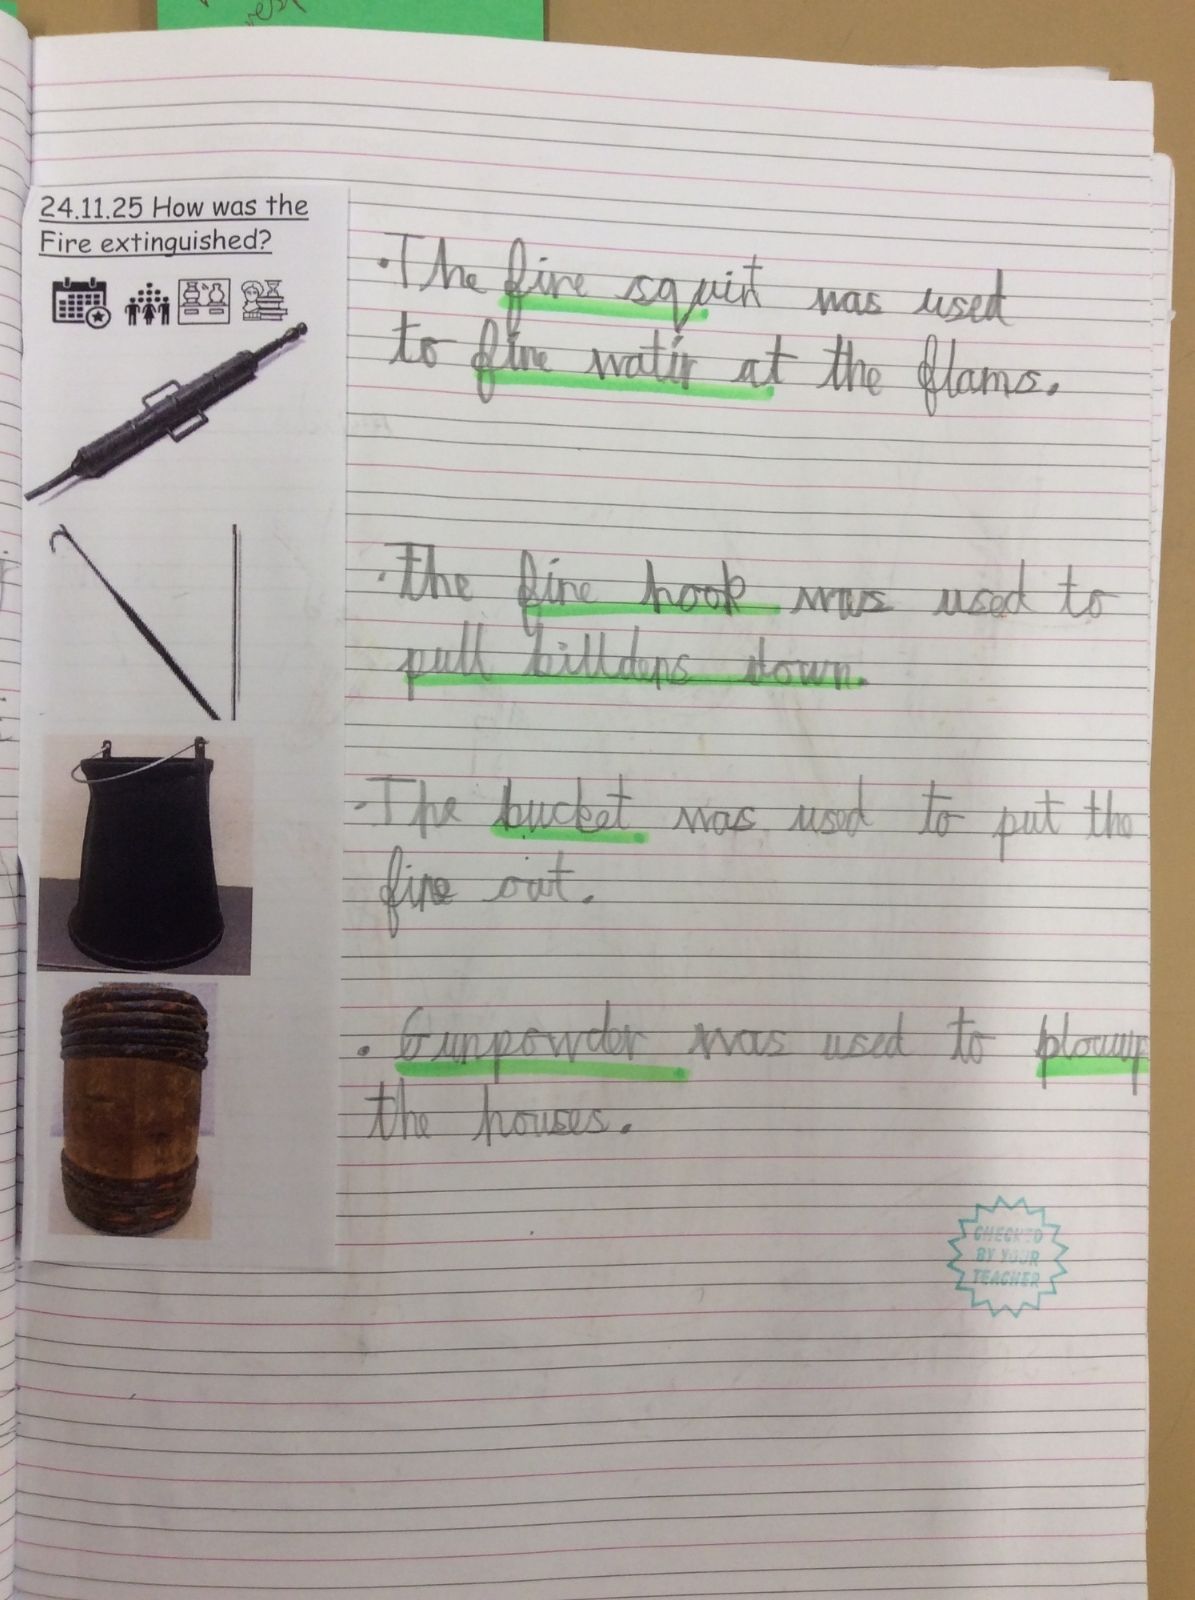 24.11.25 How was the
Fire extinguished?
·The fire squirt was used
to fire watir at the flams.
·The fire hook was used to
pull billders down.
·The bucket was used to put the
fire out.
·Gunpowder was used to blowup
the houses.
CHECKED
BY YOUR
TEACHER